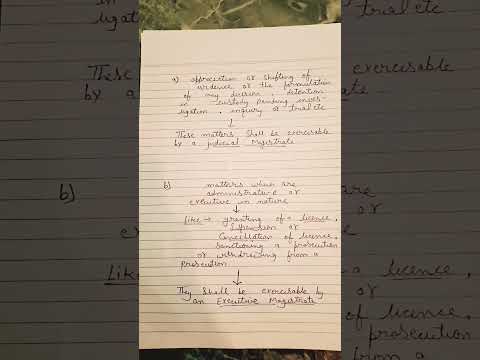 a) appreciation or shifting of
evidence or the formulation
of any decision, detention
in custody pending inves-
tigation, inquiry or trial etc
↓
These matters shall be exercisable
by a judicial Magistrate
b) matters which are
administrative or
executive in nature
↓
Like → granting of a licence,
Suspension or
Cancellation of licence,
sanctioning a prosecution
or withdrawing from a
Prosecution
↓
They shall be exercisable by
an Executive Magistrate